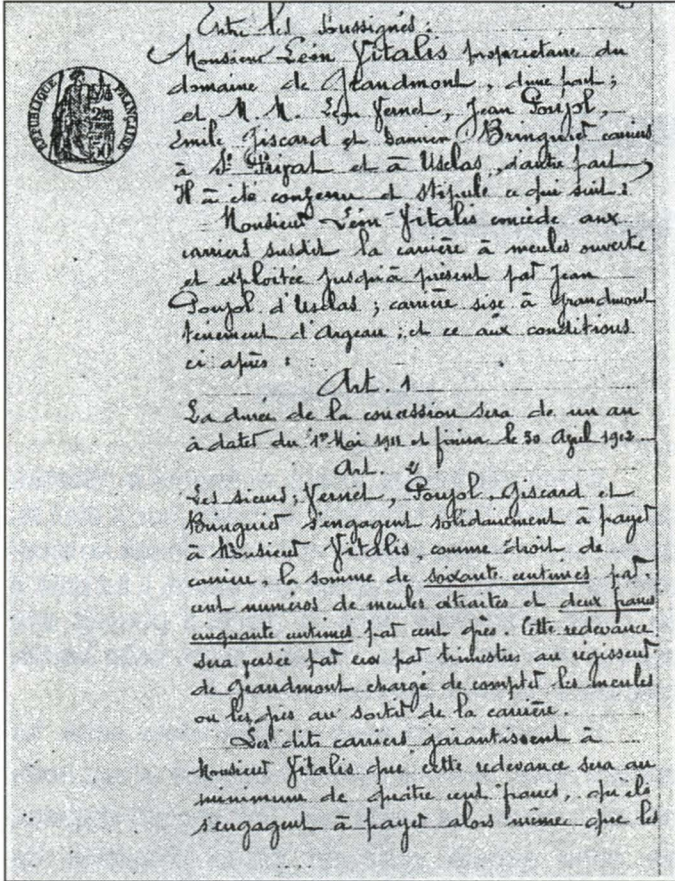 Entre les soussignés :
Monsieur Léon Vitalis propriétaire du
domaine de Grandmont, d'une part ;
et M. M. Léon Vernet, Jean Poujol,
Emile Giscard et Bringuier carriers
à St Privat et à Usclas, d'autre part,
Il à été convenu et stipulé ce qui suit :
Monsieur Léon Vitalis concède aux
carriers susdit la carrière à meules ouverte
et exploitée jusqu'à présent par Jean
Poujol d'Usclas ; carrière sise à Grandmont
tènement d'Argeau ; et ce aux conditions
ci après :
Art. 1
La durée de la concession sera de un an
à dater du 1er Mai 1911 et finira le 30 April 1912
Art. 2
Les sieurs, Vernet, Poujol, Giscard et
Bringuier s'engagent solidairement à payer
à Monsieur Vitalis, comme droit de
carrière, la somme de soixante centimes par
cent numéros de meules extraites et deux francs
cinquante centimes par cent grès. Cette redevance
sera versée par eux par trimestres au régisseur
de Grandmont chargé de compter les meules
ou les grès au sortir de la carrière.
Les dits carriers garantissent à
Monsieur Vitalis que cette redevance sera au
minimum de quatre cent francs, qu'ils
s'engagent à payer alors même que les
RÉPUBLIQUE FRANÇAISE